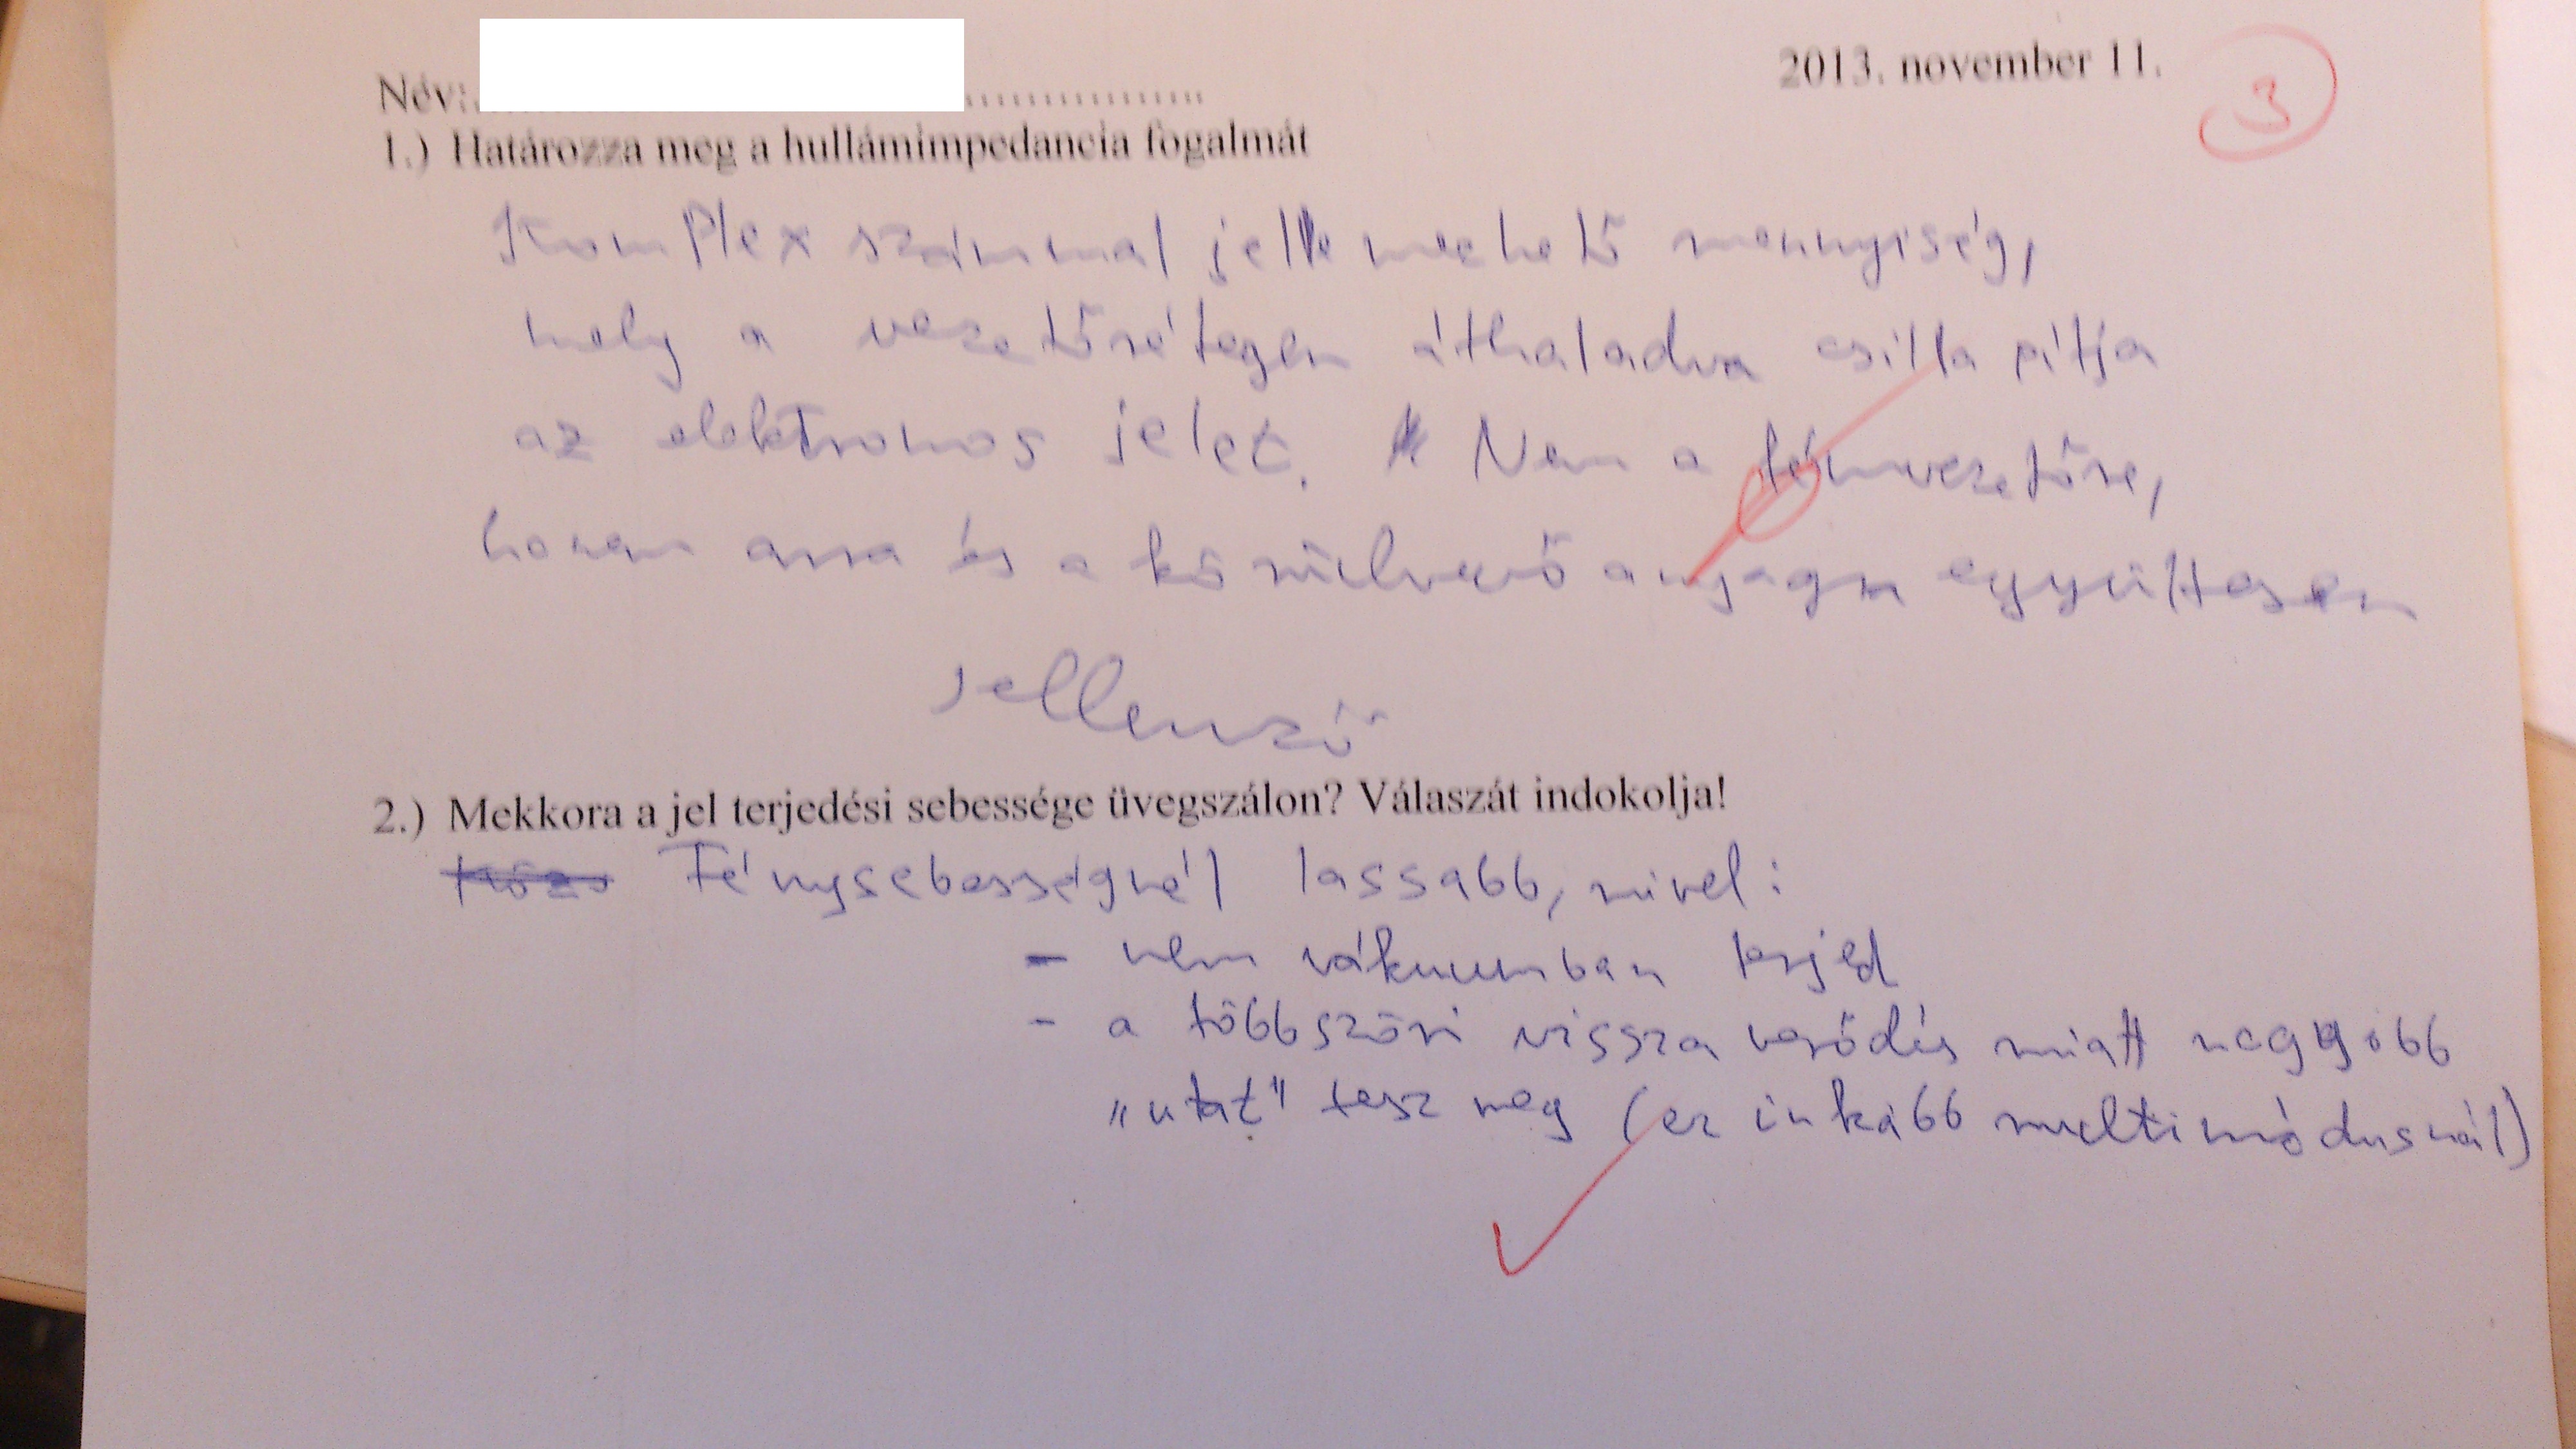 Név: 2013. november 11.
3
1.) Határozza meg a hullámimpedancia fogalmát
Komplex számmal jellemezhető mennyiség,
mely a vezetőrétegen áthaladva csillapítja
az elektromos jelet. Nem a fémvezetőre,
hanem arra és a körülvevő anyagra együttesen
jellemző
2.) Mekkora a jel terjedési sebessége üvegszálon? Válaszát indokolja!
Fénysebességnél lassabb, mivel:
- nem vákuumban terjed
- a többszöri vissza verődés miatt nagyobb
"utat" tesz meg (ez inkább multimódusnál)